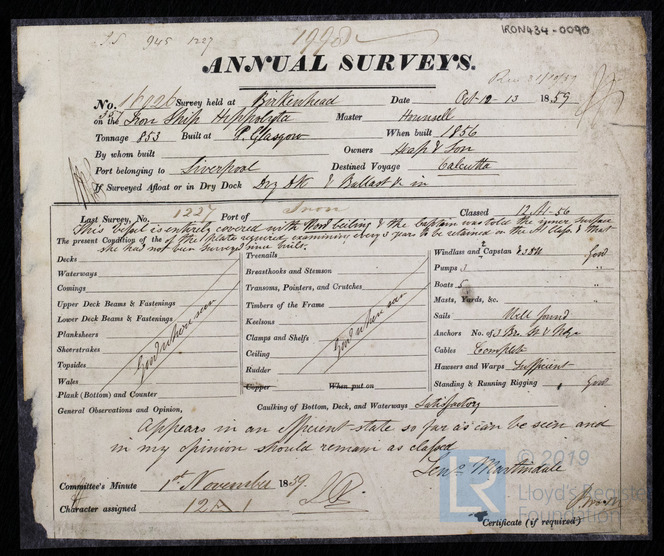 IRON434-0090
945 1227
1998
ANNUAL SURVEYS.
No. Survey held at Birkenhead Date Oct 12 - 13 1859
on the Iron Ship Hippolyta Master Hounsell
Tonnage 853 Built at P. Glasgow When built 1856
By whom built Owners Heap & Son
Port belonging to Liverpool Destined Voyage Calcutta
If Surveyed Afloat or in Dry Dock Dry Dk & Ballast in
Last Survey, No. 1227 Port of Iron Classed 12 A1 - 56
This Vessel is entirely covered with Wood ceiling & the Captain was told the inner surface
The present Condition of the of the plates required examining every 3 years to be retained on the A1 Class & that
she had not been Surveyed since built.
Decks
Waterways
Comings
Upper Deck Beams & Fastenings
Lower Deck Beams & Fastenings
Planksheers
Sheerstrakes
Topsides
Wales
Plank (Bottom) and Counter
Good where seen
Treenails
Breasthooks and Stemson
Transoms, Pointers, and Crutches
Timbers of the Frame
Keelsons
Clamps and Shelfs
Ceiling
Rudder
Copper When put on
Good where seen
Windlass and Capstan Good
Pumps "
Boats 5 "
Masts, Yards, &c. "
Sails Well found
Anchors No. of 3
Cables Complete
Hausers and Warps Sufficient
Standing & Running Rigging Good
General Observations and Opinion, Caulking of Bottom, Deck, and Waterways Satisfactory
Appears in an efficient state so far as can be seen and
in my opinion should remain as classed
Martindale
Committee's Minute 1st November 1859.
Character assigned 12 A 1
Certificate (if required)
© 2019
LR
Lloyd's Register
Foundation